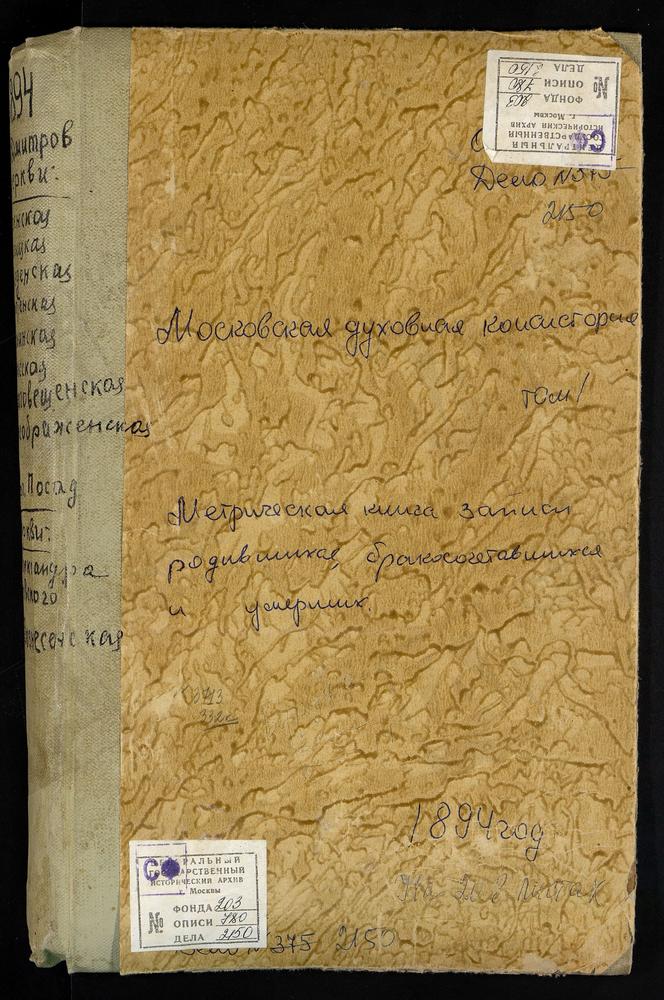 894
митров
нской
цкая
денская
енская
инская
ская
овещенская
ображенская
Посад
ЦЕНТРАЛЬНЫЙ
ГОСУДАРСТВЕННЫЙ
ИСТОРИЧЕСКИЙ АРХИВ
г. Москвы
№
ФОНДА 203
ОПИСИ 780
ДЕЛА 2150
Дело №375
2150
Московская духовная консистория
том 1
Метрическая книга записи
родившихся, бракосочетавшихся
и умерших.
1894 год
ЦЕНТРАЛЬНЫЙ
ГОСУДАРСТВЕННЫЙ
ИСТОРИЧЕСКИЙ АРХИВ
г. Москвы
№
ФОНДА 203
ОПИСИ 780
ДЕЛА 2150
Дело №375 2150